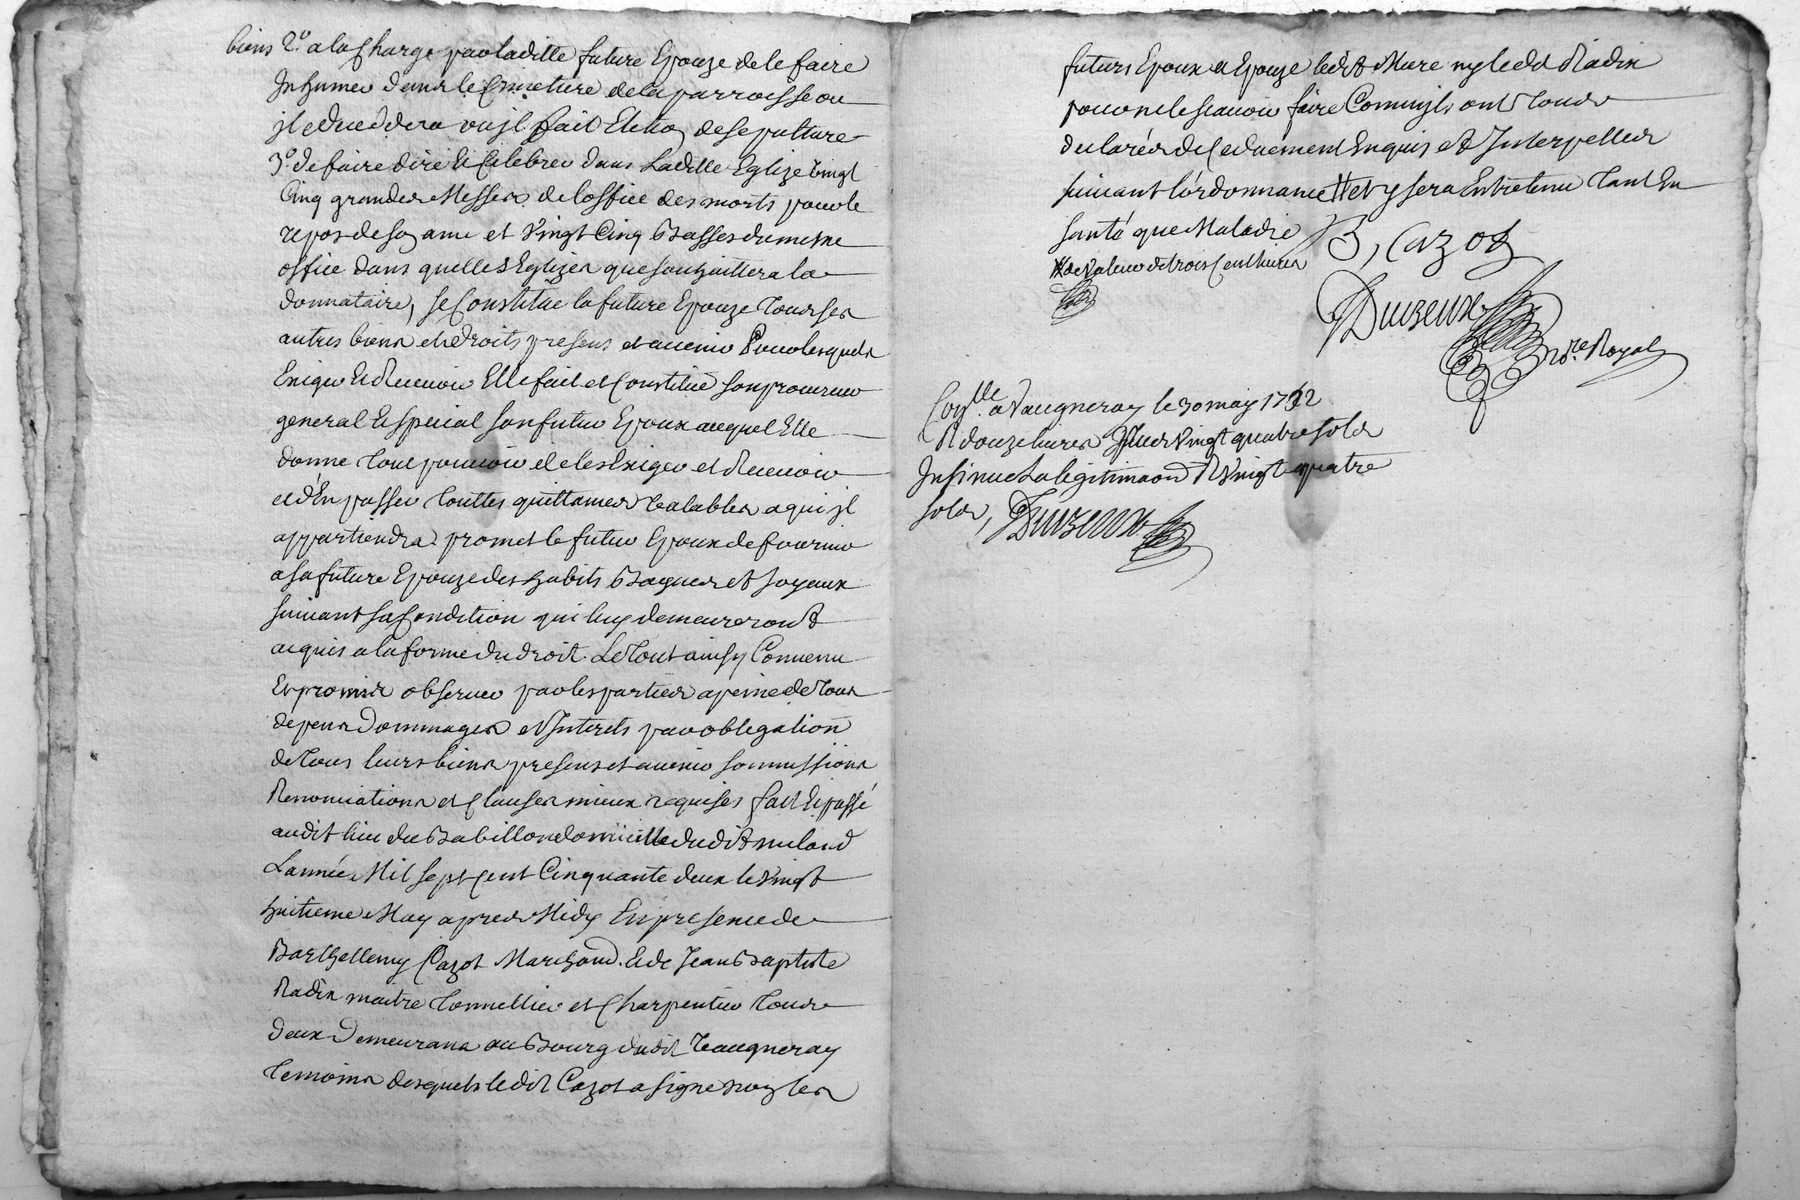 biens 2.º a la Charge par laditte future Epouze de le faire
Inhumer dans le Cimetiere de la parroisse ou
jl deceddera ou jl fait Election de sepulture
3.º de faire dire et Celebrer dans Laditte Eglize Vingt
Cinq grandes Messes de loffice des morts pour le
repos de son ame et Vingt Cinq Basses du mesme
office dans quelles Eglizes que souhaittera la
donnataire, se Constitue la future Epouze Tous ses
autres biens et droits presens et avenir Pour lesquels
Exiger et Recevoir Elle fait et Constitue son procureur
general et special son futur Epoux auquel Elle
donne Tout pouvoir de les Exiger et Recevoir
et d'En passer Touttes quittances Valables a qui jl
appartiendra promet le futur Epoux de fournir
a sa future Epouze des habits Bagues et Joyaux
suivant sa Condition qui luy demeureront
acquis a la forme du droit. Le Tout ainsy Convenu
Et promis observer par les parties a peine de Tous
depens Dommages et Interets par obligation
de Tous leurs biens presens et avenir soumissions
Renonciations et Clauses mieux requises fait et passé
audit lieu du Babillon domicille dudit
L'année Mil sept Cent Cinquante deux le Vingt
huitieme May apres Midy En presence de
Barthellemy Cazot Marchand. et de Jean Baptiste
Radix maitre Tonnellier et Charpentier Tous
deux Demeurans au Bourg dudit Vaugneray
Temoins desquels ledit Cazot a signé non les
futurs Epoux et Epouze ledit Mure ny ledit Radix
pour ne le scavoir faire Comme jls ont Tous
declarés de Ce duement Enquis et Interpellés
suivant l'ordonnance # et y sera Entretenu Tant En
santé que Maladie B, Cazot
# de Valeur de trois Cent livres
Duizeux
No.re Royal
Con.lle a Vaugneray le 30 may 1752
R douze livres Vingt quatre sols
Insinué La legitimaon R Vingt quatre
sols, Duizeux